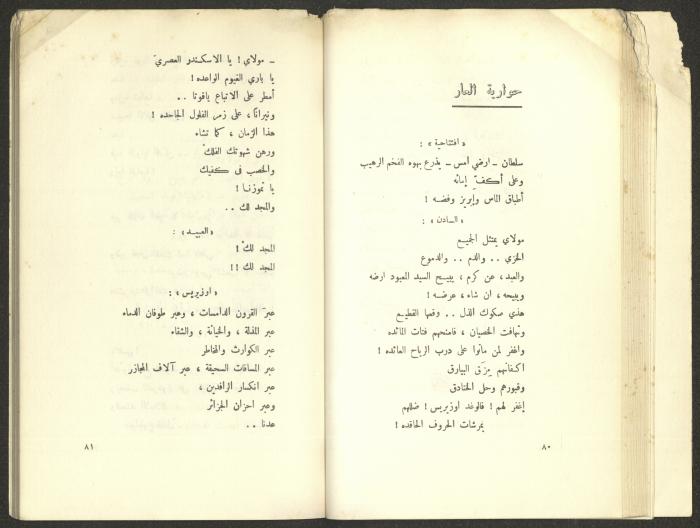 حوارية العار
« افتتاحية » :
سلطان - ارضي أمس - يذرع بهوه الفخم الرهيب
وعلى أكفّ إمائه
أطباق الماس وإبريز وفضه !
« السادن » :
مولاي يمتثل الجميع
الخزي . . والدم . . والدموع
والعبد ، عن كرم ، يبيح السيد المعبود ارضه
ويبيحه ، ان شاء ، عرضه !
هذي صكوك الذل . . وقعها القطيع
وتهافت الخصيان ، فامنحهم فتات المائده
واغفر لمن ماتوا على درب الرياح العائده !
اكفانهم مِزَق البيارق
وقبورهم وحل الخنادق
إغفر لهم ! فالوغد اوزيريس ! ضللهم
بمرشات الحروف الحاقده !
٨٠
- مولاي ! يا الاسكندر العصريّ
يا باري الغيوم الواعده !
أمطر على الاتباع ياقوتا . .
ونيرانًا ، على زمر الفلول الجاحده !
هذا الزمان ، كما تشاء
ورهن شهوتك الفلكْ
والخصب في كفيك
يا تموزنا !
والمجد لك . .
« العبيد » :
المجد لكْ !
المجد لك !!
« اوزيريس » :
عبرَ القرون الدامسات ، وعبر طوفان الدماء
عبر المذلة ، والخيانة ، والشقاء
عبر الكوارث والمخاطر
عبر المسافات السحيقة ، عبر آلاف المجازر
عبر انكسار الرافدين ،
وعبر احزان الجزائر
عدنا . .
٨١